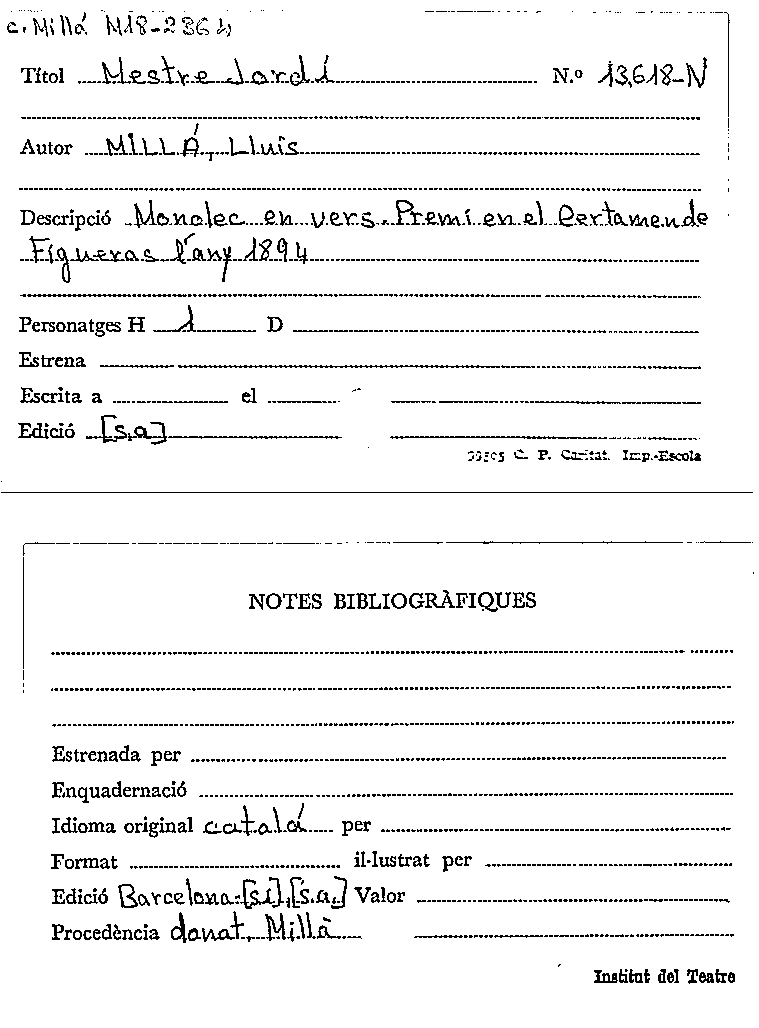 c. Millá M18-2864
Títol Mestre Jordí N.º 13.618-N
Autor MILLÁ, Lluis
Descripció Monolec en vers. Premi en el Certamen de
Figueras l'any 1894
Personatges H 1 D
Estrena
Escrita a el
Edició [s.a]
C. P. Caritat. Imp.-Escola
NOTES BIBLIOGRÀFIQUES
Estrenada per
Enquadernació
Idioma original catalá per
Format il·lustrat per
Edició Barcelona:[s.i],[s.a.] Valor
Procedència donat. Millà
Institut del Teatre